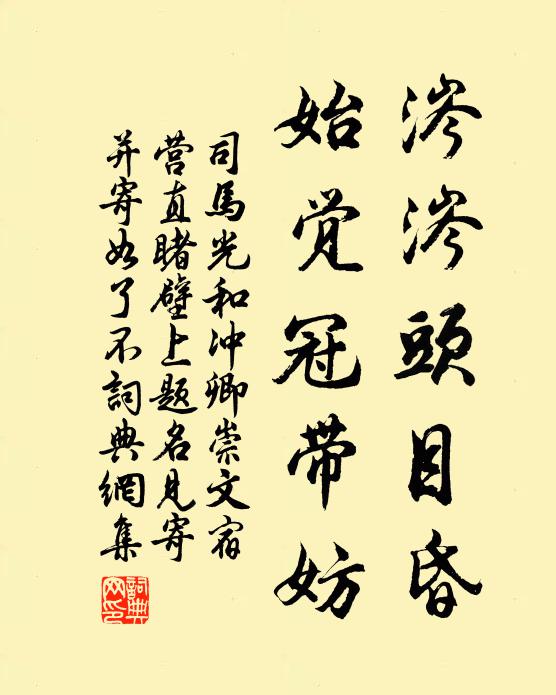 涔涔頭目昏
始觉冠帶妨
司馬光和冲卿崇文宿
营直睹壁上题名见寄
并寄如了不詞典網集
詞典
网印